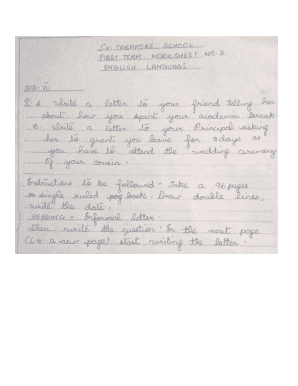 J.H. TARAPORE SCHOOL
FIRST TERM WORKSHEET NO 2
ENGLISH LANGUAGE
STD: VII
Q: a write a letter to your friend telling her
about how you spent your academic break
write a letter to your Principal asking
her to grant you leave for days as
you have to attend the wedding ceremony
of your cousin.
Instructions to be followed - Take a 96 pages
single ruled book. Draw double lines,
write the date.
HEADING = Informal letter.
Then write the question. On the next page
(i.e. a new page) start writing the letter.